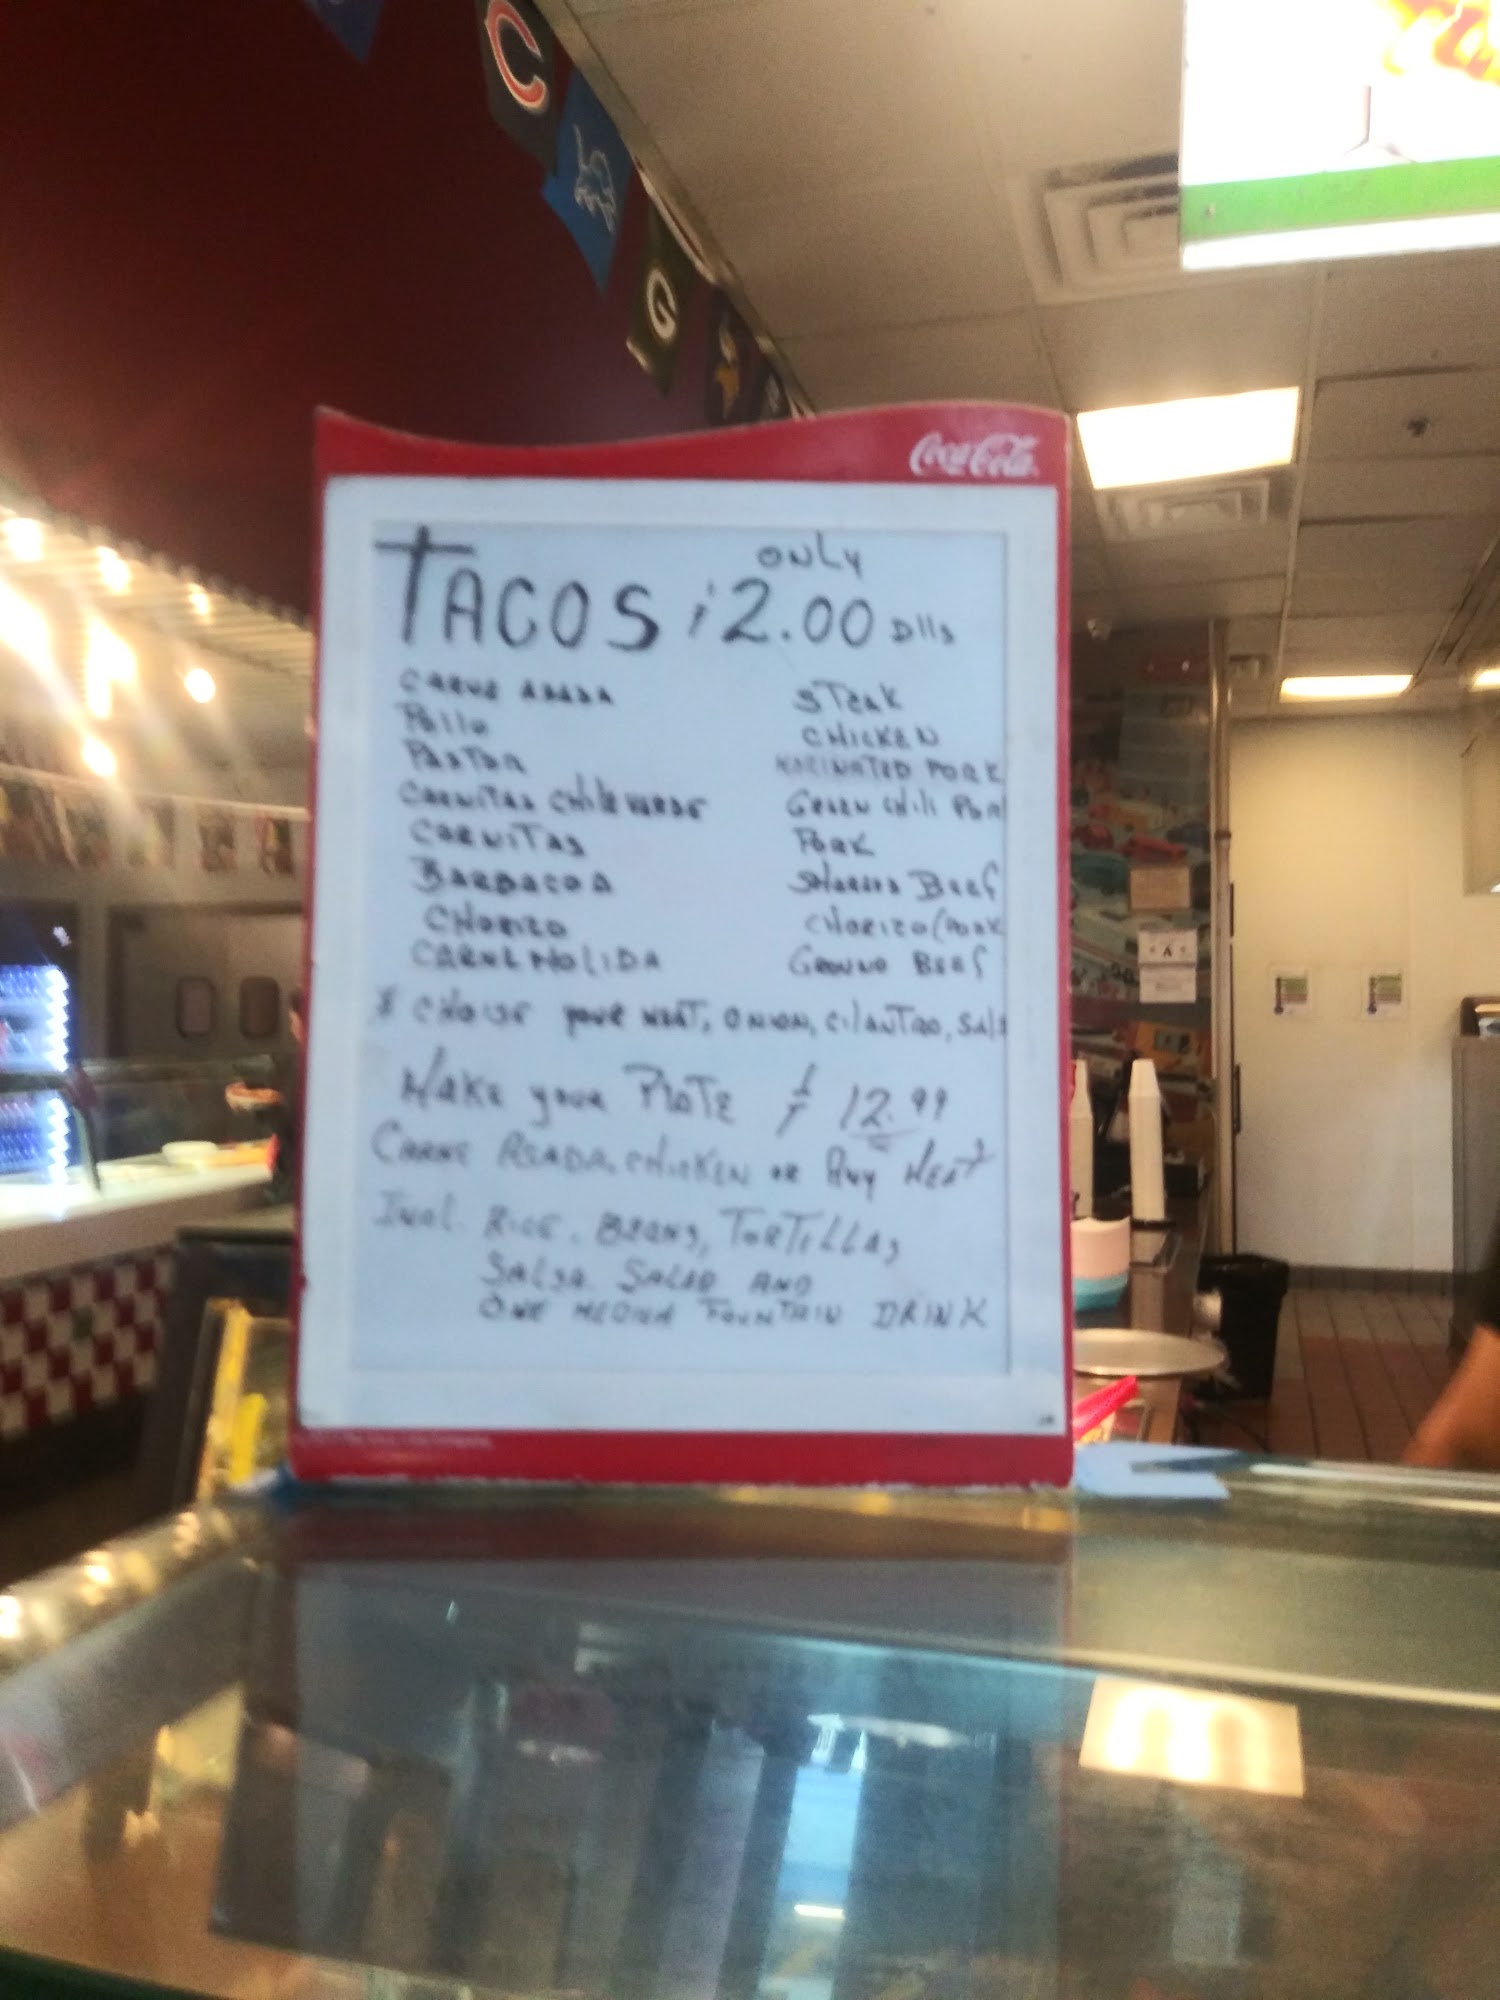 C
G
Coca-Cola
ONLY
TACOS ¡2.00 Dlls
CARNE ASADA STEAK
Pollo CHICKEN
PASTOR MARINATED PORK
CARNITAS CHILE VERDE GREEN CHILI POR
CARNITAS PORK
BARBACOA BEEF
CHORIZO CHORIZO (PORK
CARNE MOLIDA GROUND BEEF
* CHOISE YOUR MEAT, ONION, CILANTRO, SALS
MAKE YOUR PLATE $ 12.99
CARNE ASADA, CHICKEN OR ANY MEAT
Incl. RICE. BEANS, TORTILLAS,
SALSA SALAD AND
ONE MEDIUM FOUNTAIN DRINK
A